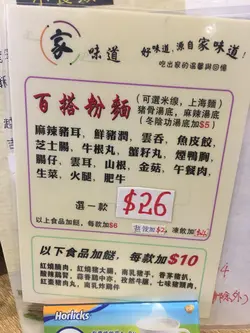 家 味道
好味道,源自家味道!
吃出家的溫馨與回憶
百搭粉麵
(可選米線,上海麵)
豬骨湯底、麻辣湯底
(冬陰功湯底加$5)
麻辣豬耳、鮮豬潤、雲吞、魚皮餃、
芝士腸、牛根丸、蟹籽丸、煙鴨胸、
腸仔、雲耳、山根、金菇、午餐肉、
生菜、火腿、肥牛
選一款 $26
以上食品加餸,每款加$6
以下食品加餸,每款加$10
紅燒腩肉、紅燒豬大腸、南乳豬手、香茅豬扒、
紅棗豬肉丸、南乳炸雞件
Horlicks